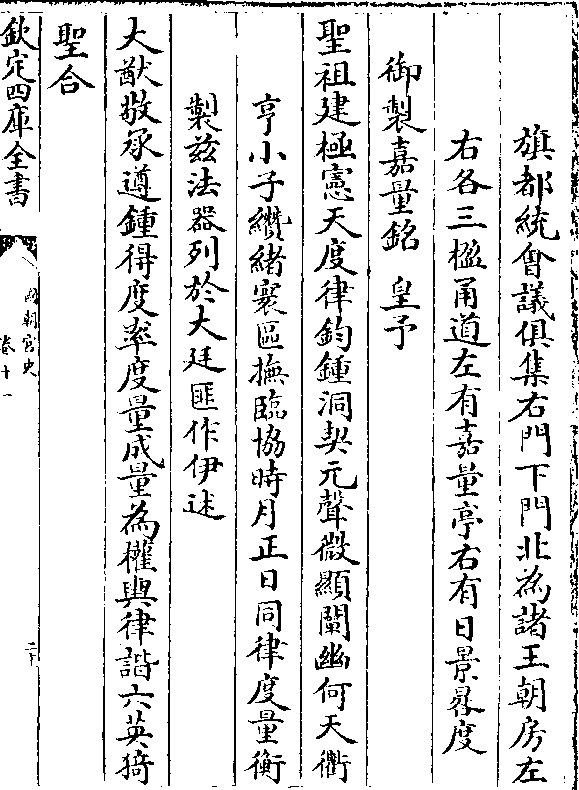 旗都統會議俱集右門下門北為諸王朝房左
右各三楹甬道左有嘉量亭右有日景晷度
御製嘉量銘　皇予
聖祖建極憲天度律鈞鍾洞契元聲微顯闡幽何天衢
亨小子纘緒寰區撫臨協時月正日同律度量衡
製茲法器列於大廷匪作伊述
大猷敬承遵鍾得度率度量成量為權輿律諧六英猗
聖合
欽定四庫全書
國朝宮史
卷十一
二十